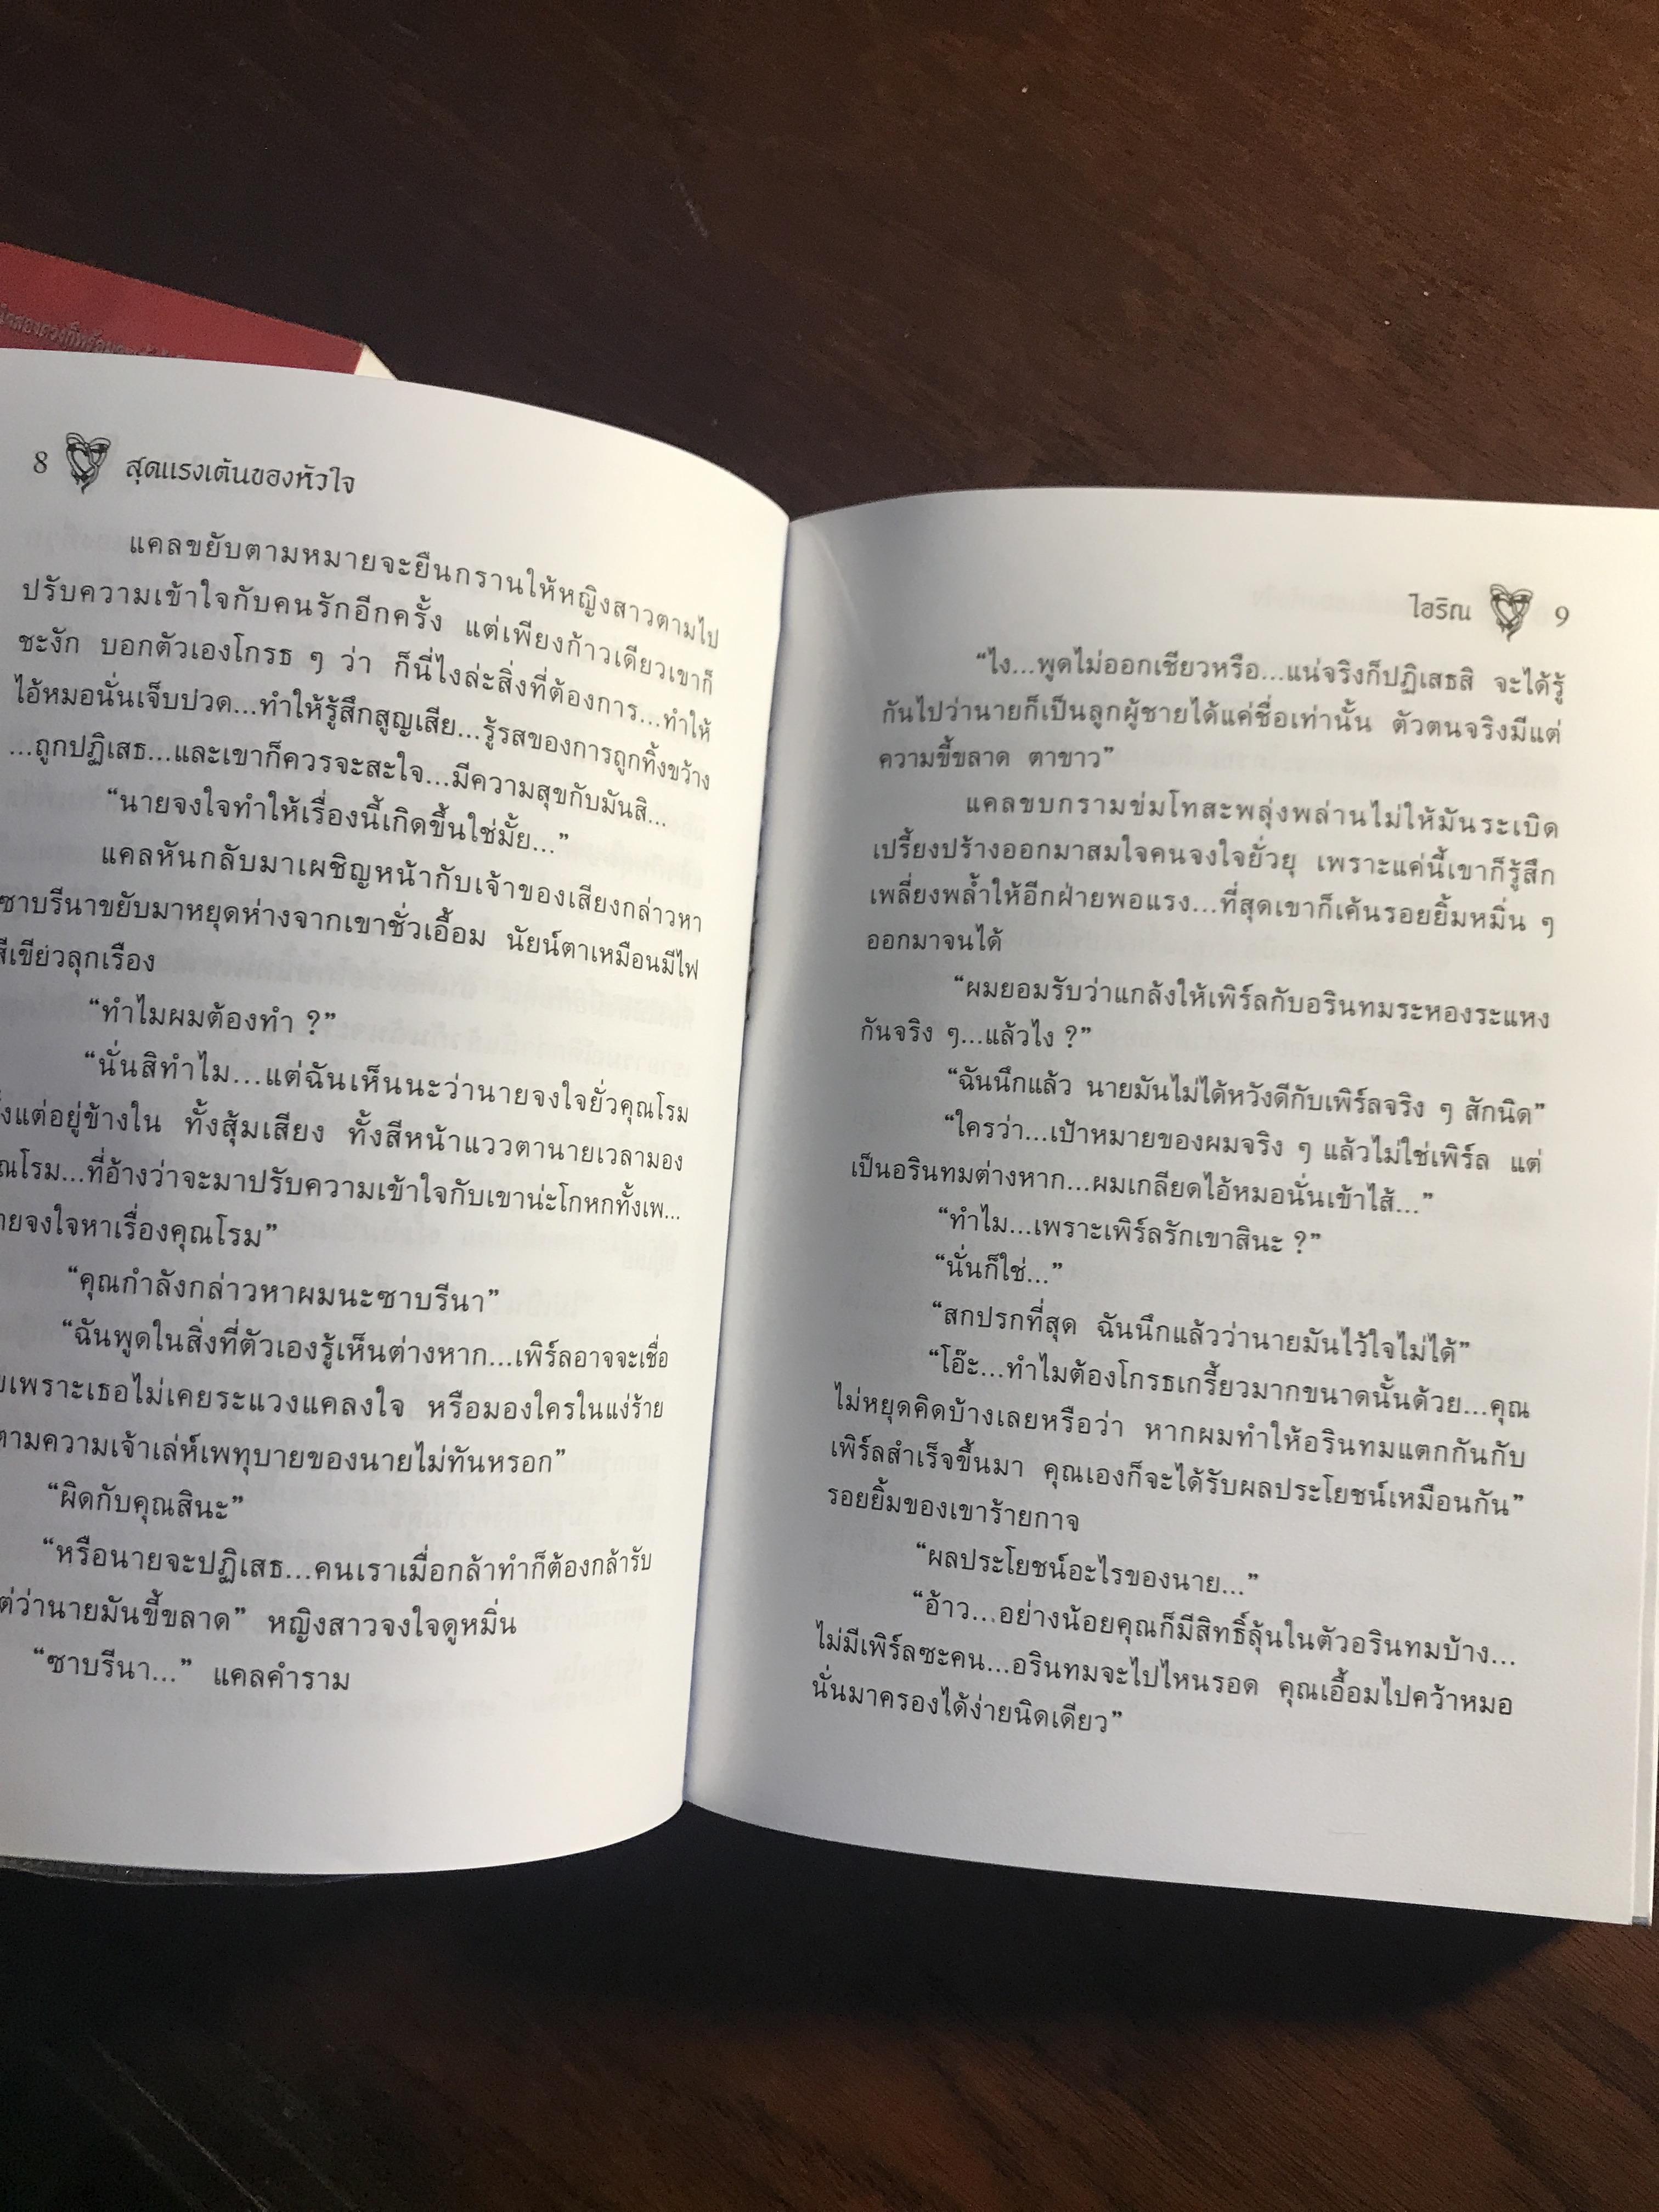 8 สุดแรงเต้นของหัวใจ
แคลขยับตามหมายจะยืนกรานให้หญิงสาวตามไป
ปรับความเข้าใจกับคนรักอีกครั้ง แต่เพียงก้าวเดียวเขาก็
ชะงัก บอกตัวเองโกรธ ๆ ว่า ก็นี่ไงล่ะสิ่งที่ต้องการ...ทำให้
ไอ้หมอนั่นเจ็บปวด...ทำให้รู้สึกสูญเสีย...รู้รสของการถูกทิ้งขว้าง
...ถูกปฏิเสธ...และเขาก็ควรจะสะใจ...มีความสุขกับมันสิ...
“นายจงใจทำให้เรื่องนี้เกิดขึ้นใช่มั้ย...”
แคลหันกลับมาเผชิญหน้ากับเจ้าของเสียงกล่าวหา
ซาบรีนาขยับมาหยุดห่างจากเขาชั่วเอื้อม นัยน์ตาเหมือนมีไฟ
สีเขียวลุกเรือง
“ทำไมผมต้องทำ ?”
“นั่นสิทำไม...แต่ฉันเห็นนะว่านายจงใจยั่วคุณโรม
แต่อยู่ข้างใน ทั้งสุ้มเสียง ทั้งสีหน้าแววตานายเวลามอง
โรม...ที่อ้างว่าจะมาปรับความเข้าใจกับเขาน่ะโกหกทั้งเพ...
จงใจหาเรื่องคุณโรม”
“คุณกำลังกล่าวหาผมนะซาบรีนา”
“ฉันพูดในสิ่งที่ตัวเองรู้เห็นต่างหาก...เพิร์ลอาจจะเชื่อ
เพราะเธอไม่เคยระแวงแคลงใจ หรือมองใครในแง่ร้าย
ตามความเจ้าเล่ห์เพทุบายของนายไม่ทันหรอก”
“ผิดกับคุณสินะ”
“หรือนายจะปฏิเสธ...คนเราเมื่อกล้าทำก็ต้องกล้ารับ
ว่านายมันขี้ขลาด” หญิงสาวจงใจดูหมิ่น
“ซาบรีนา...” แคลคำราม
ไฮริณ 9
“ไง...พูดไม่ออกเชียวหรือ...แน่จริงก็ปฏิเสธสิ จะได้รู้
กันไปว่านายก็เป็นลูกผู้ชายได้แค่ชื่อเท่านั้น ตัวตนจริงมีแต่
ความขี้ขลาด ตาขาว”
แคลขบกรามข่มโทสะพลุ่งพล่านไม่ให้มันระเบิด
เปรี้ยงปร้างออกมาสมใจคนจงใจยั่วยุ เพราะแค่นี้เขาก็รู้สึก
เพลี่ยงพล้ำให้อีกฝ่ายพอแรง...ที่สุดเขาก็เค้นรอยยิ้มหมิ่น ๆ
ออกมาจนได้
“ผมยอมรับว่าแกล้งให้เพิร์ลกับอรินทมระหองระแหง
กันจริง ๆ...แล้วไง ?”
“ฉันนึกแล้ว นายมันไม่ได้หวังดีกับเพิร์ลจริง ๆ สักนิด”
“ใครว่า...เป้าหมายของผมจริง ๆ แล้วไม่ใช่เพิร์ล แต่
เป็นอรินทมต่างหาก...ผมเกลียดไอ้หมอนั่นเข้าไส้...”
“ทำไม...เพราะเพิร์ลรักเขาสินะ ?”
“นั่นก็ใช่...”
“สกปรกที่สุด ฉันนึกแล้วว่านายมันไว้ใจไม่ได้”
“โอ๊ะ...ทำไมต้องโกรธเกรี้ยวมากขนาดนั้นด้วย...คุณ
ไม่หยุดคิดบ้างเลยหรือว่า หากผมทำให้อรินทมแตกกันกับ
เพิร์ลสำเร็จขึ้นมา คุณเองก็จะได้รับผลประโยชน์เหมือนกัน”
รอยยิ้มของเขาร้ายกาจ
“ผลประโยชน์อะไรของนาย...”
“อ้าว...อย่างน้อยคุณก็มีสิทธิ์ลุ้นในตัวอรินทมบ้าง...
ไม่มีเพิร์ลซะคน...อรินทมจะไปไหนรอด คุณเอื้อมไปคว้าหมอ
นั่นมาครองได้ง่ายนิดเดียว”